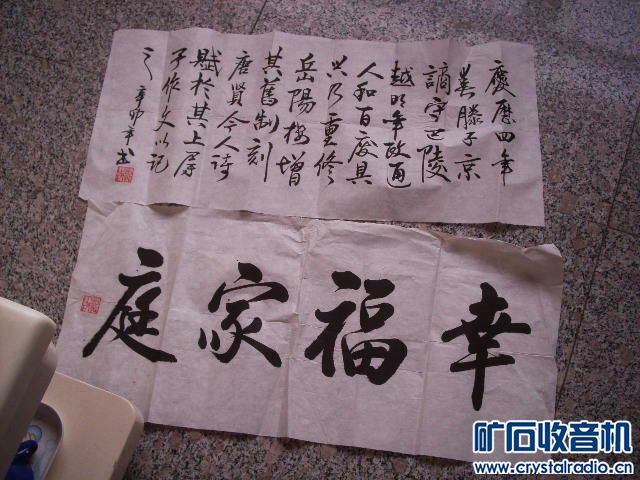 慶歷四年
春滕子京
謫守巴陵
越明年政通
人和百廢具
兴乃重修
岳陽樓增
其舊制刻
唐賢今人詩
賦於其上属
予作文以记
之 辛卯年书
幸福家庭
矿石收音机
www.crystalradio.cn